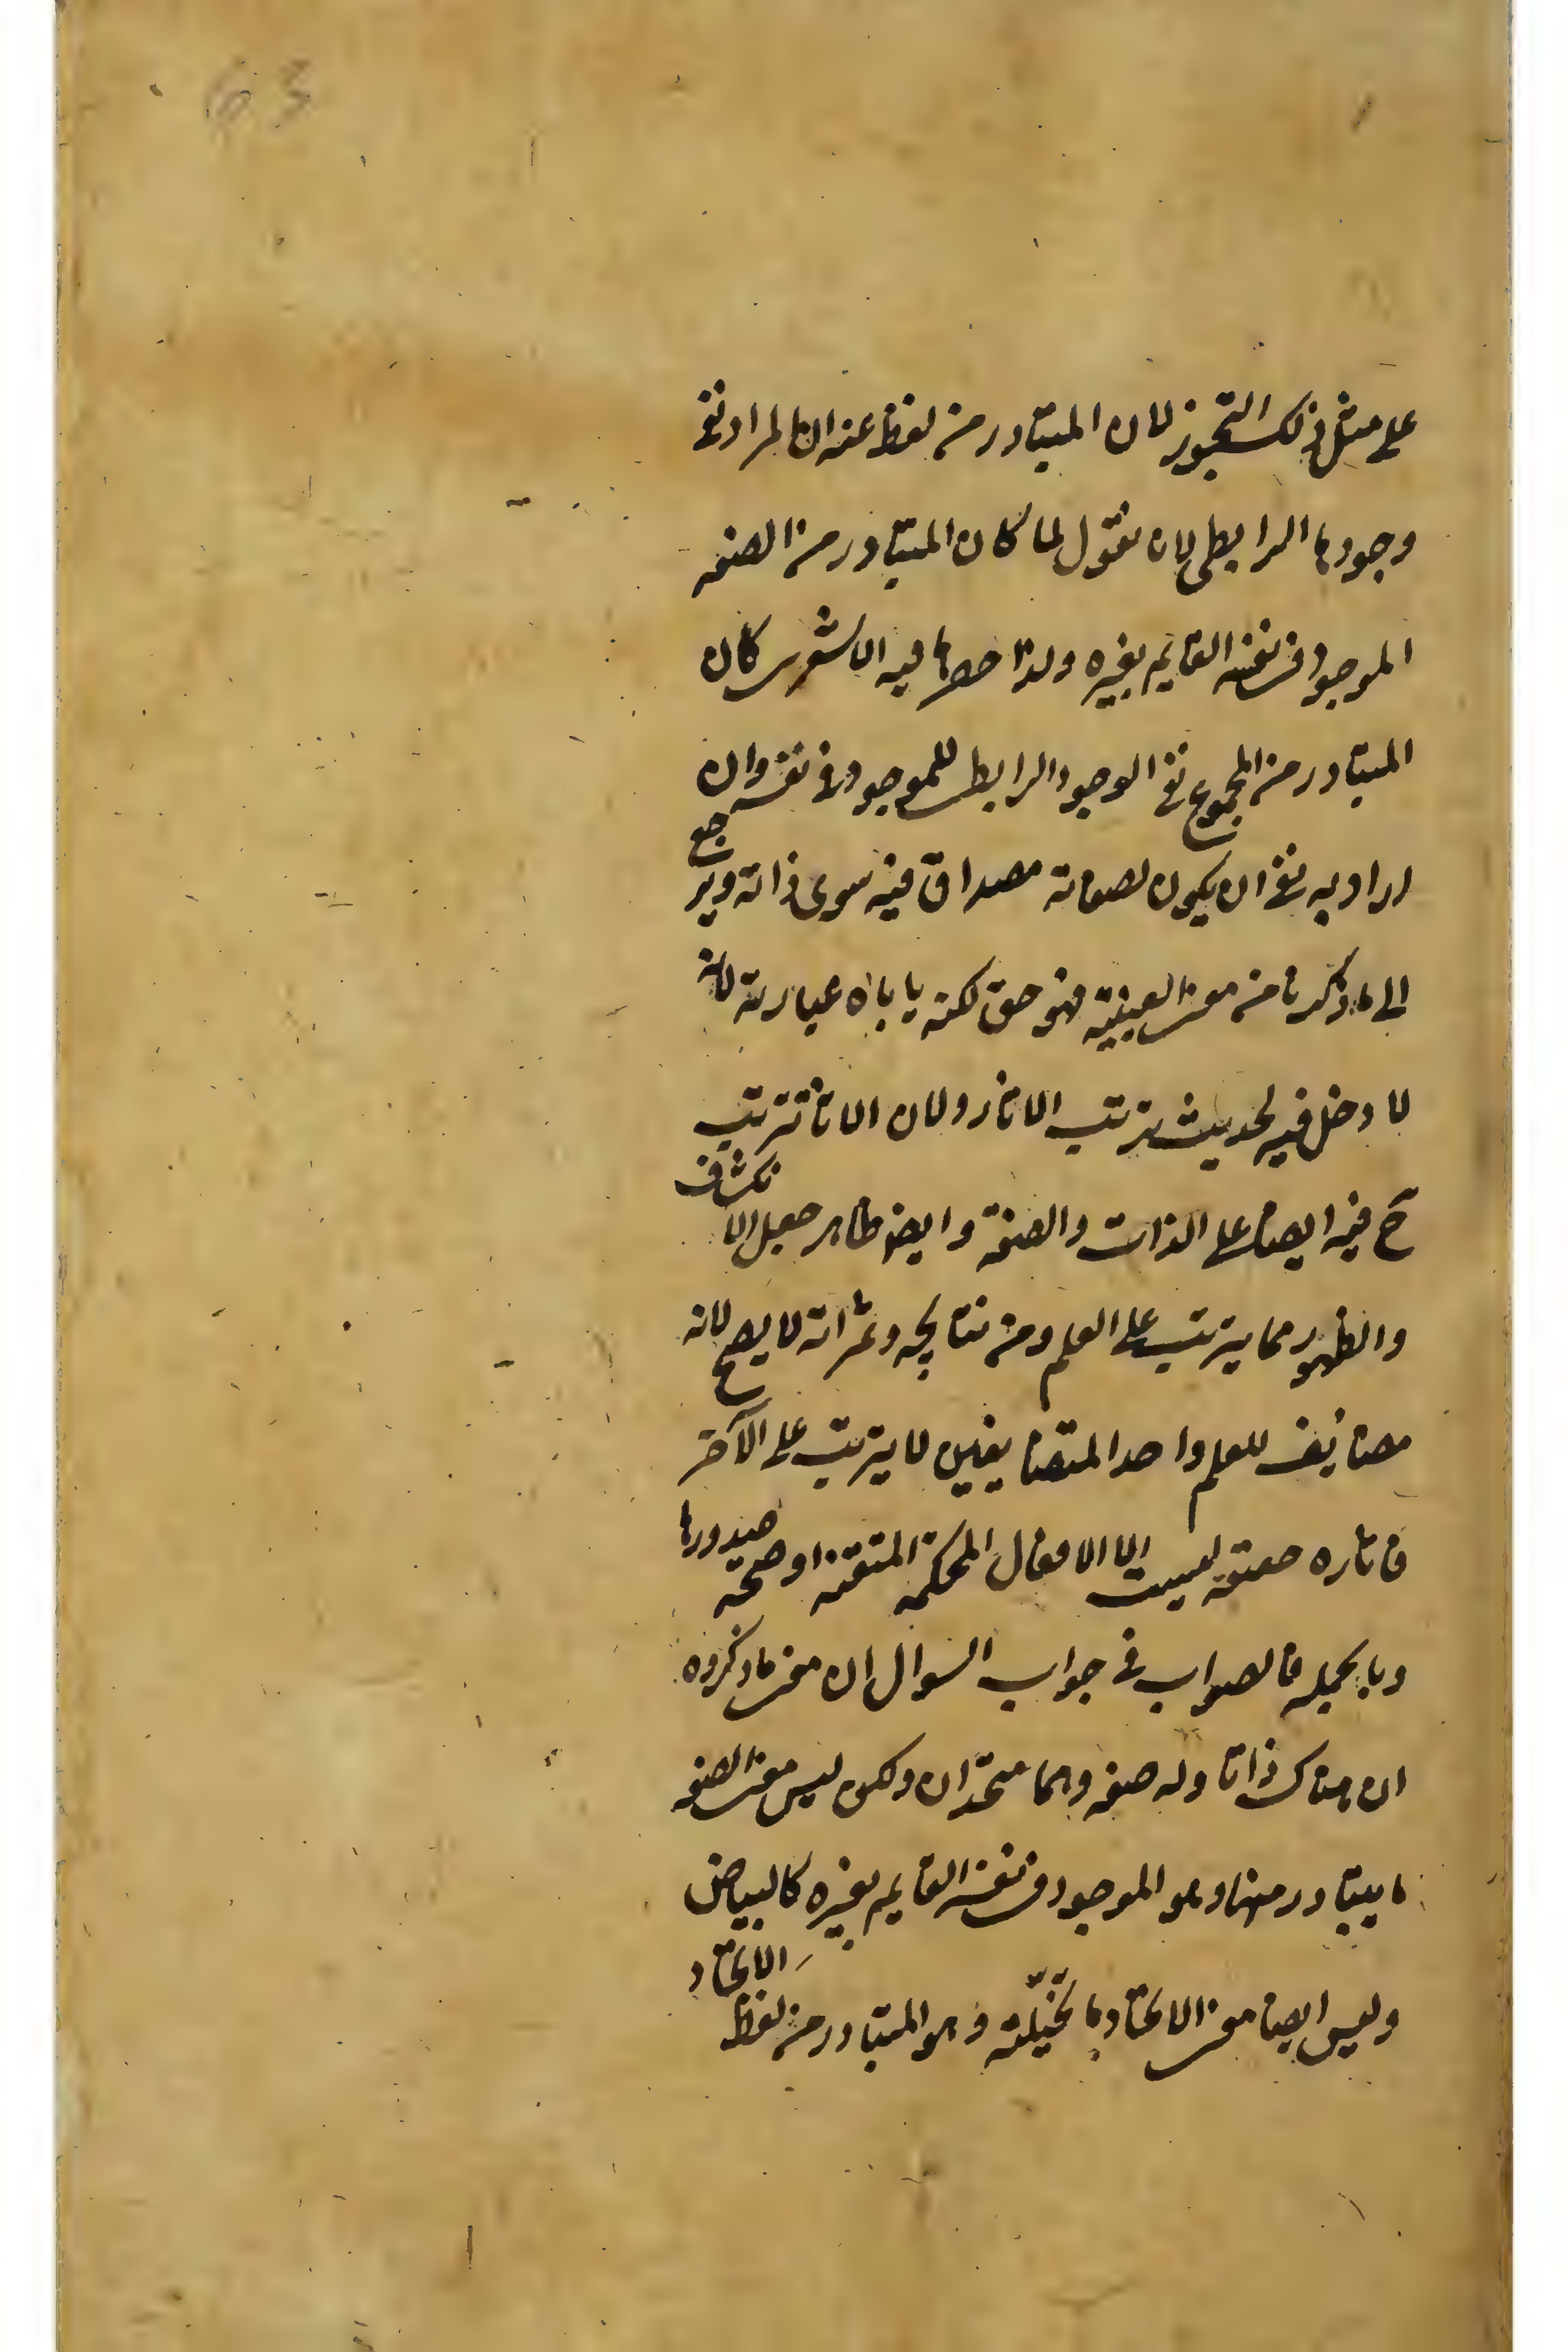 63
على مثل ذلك التجوز لان المتبادر من لفظ عنه ان المراد نفى
وجودها الرابطى لانا نقول لما كان المتبادر من الصفه
الموجود فى نفسه القايم بغيره ولذا حصرها فيه الاشعرى كان
المتبادر من المجموع نفى الوجود الرابطى للموجود فى نفسه وان
اراد به نفى ان يكون لصفاته مصداق فيه سوى ذاته ويرجع
الى ما ذكرنا من معنى العينية فهو حق لكنه ياباه عبارته لانه
لا دخل فيه لحديث ترتب الاثار ولان الاثار تترتب
ح فيه ايضا على الذات والصفة وايضا ظاهر جعل الانكشاف
والظهور مما يترتب على العلم ومن نتايجه وثمراته لا يصح لانه
مضائف للعلم واحد المتضايفين لا يترتب على الآخر
فاثاره حقيقة ليست الا الافعال المحكمة المتقنة او صحة صدورها
وبالجمله فالصواب فى جواب السوال ان معنى ما ذكروه
ان هناك ذاتا وله صفه وهما متحدان ولكن ليس معنى الصفه
ما يتبادر منها وهو الموجود فى نفسه القايم بغيره كالبياض
وليس ايضا معنى الاتحاد ما تخيلته وهو المتبادر من لفظ الاتحاد